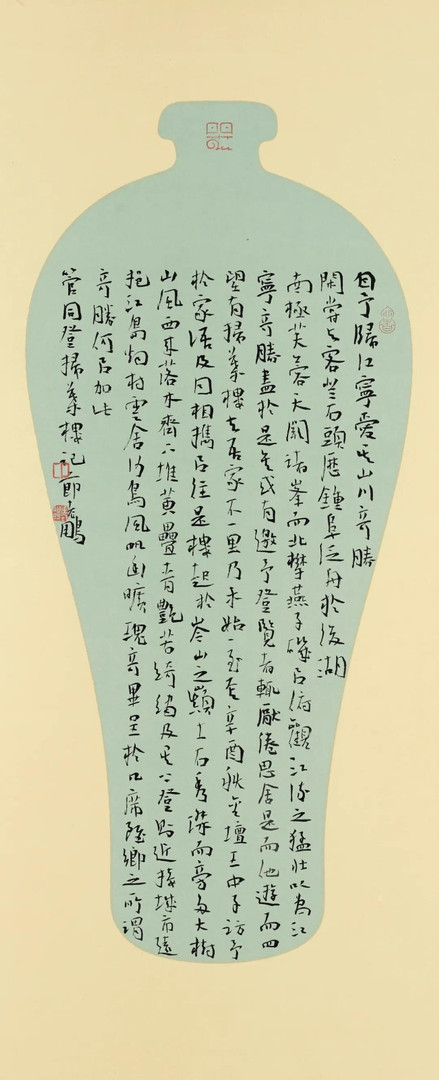 自予歸江寧愛其山川奇勝
閒嘗与客登石頭歷鍾阜泛舟於後湖
南極芙蓉天闕諸峯而北攀燕子磯以俯觀江流之猛壯以為江
寧奇勝盡於是矣或有邀予登覽者輒厭倦思舍是而他遊而四
望有掃葉樓去吾家不一里乃未始一至焉辛酉秋金壇王中子訪予
於家語及因相攜以往是樓起於岑山之顛土石秀潔而旁多大樹
山風西來落木齊下堆黃疊青艷若綺繡及其上登則近接城市遠
挹江島烟村雲舍沙鳥風帆幽曠瑰奇畢呈於几席雖鄉之所謂
奇勝何以加此
管同登掃葉樓記節鵬